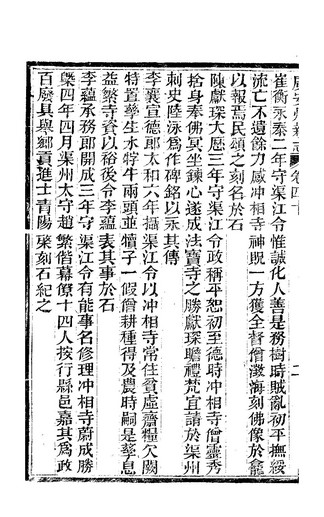 崔衡永泰二年守渠江令惟誠化人善是務樹時賊亂初平撫綏
流亡不遺餘力感冲相寺神貺一方獲全督僧澂海刻佛像於龕
以報焉民頌之刻名於石
陳獻琛大歷三年守渠江令政稱平恕初至德時冲相寺僧靈秀
捨身奉佛冥坐鍊心遂成法寶寺之勝獻琛瞻禮梵宜請於渠州
刺史陸泳爲作碑銘以永其傳
李襄宣德郎太和六年攝渠江令以冲相寺常住貧虛齋糧欠闕
特置孳生水牸牛兩頭並犢子一假僧耕種得及農時嗣是孳息
益繁寺資以裕後令李蘊表其事於石
李蘊承務郎開成三年守渠江令有能事名修理冲相寺蔚成勝
槩四年四月渠州太守趙繁偕幕僚十四人按行縣邑嘉其爲政
百廢具舉鄉貢進士青陽棐刻石紀之